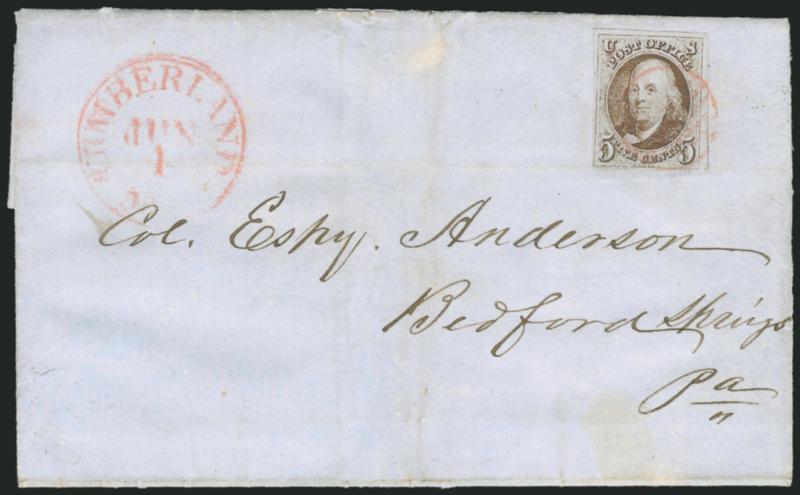 CUMBERLAND
JUN
1
U S
POST OFFICE
5 FIVE CENTS 5
Col. Espy. Anderson
Bedford Springs
Pa